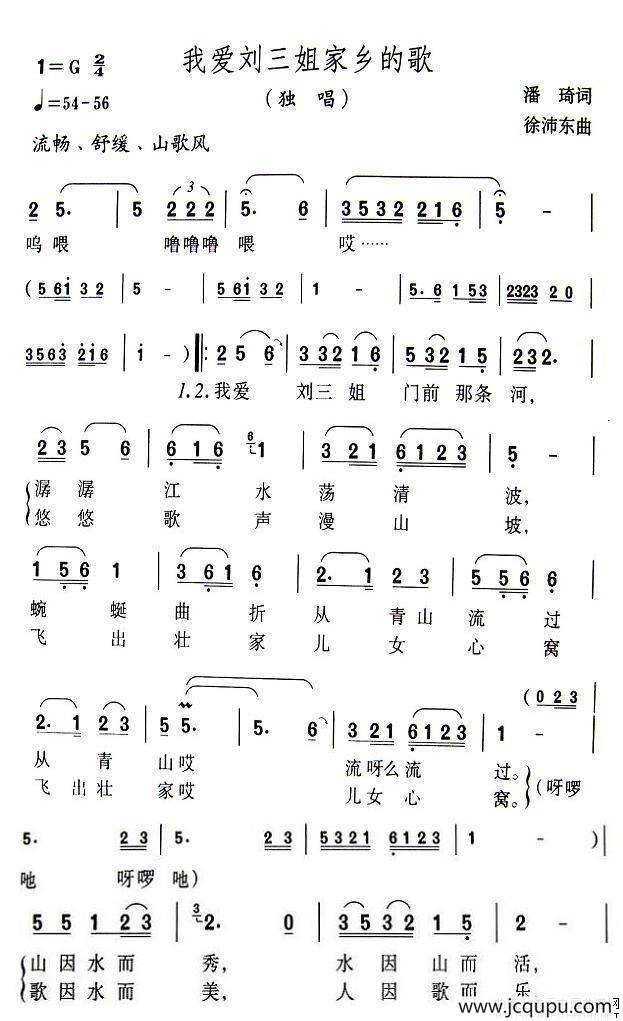 1=G 2/4
我爱刘三姐家乡的歌
♩=54-56
(独 唱)
潘 琦词
徐沛东曲
流畅、舒缓、山歌风
2 5. | 5 2 2 2 | 5. 6 | 3 5 3 2 2 1 6 | 5 - |
呜喂 噜噜噜 喂 哎……
(5 6 1 3 2 | 5 - | 5 6 1 3 2 | 1 - | 5. 6 1 5 3 | 2 3 2 3 2 0 |
3 5 6 3 2 1 6 | 1 - ) |: 2 5 6 | 3 3 2 1 6 | 5 3 2 1 5 | 2 3 2. |
1.2.我爱 刘三 姐 门前 那条 河,
2 3 5 6 | 6 1 6 1 | 3 2 1 6 1 2 3 | 5 - |
潺 潺 江 水 荡 清 波,
悠 悠 歌 声 漫 山 坡,
1 5 6 1 | 3 6 5 6 | 2. 1 2 3 | 5 5 6 6 |
蜿 蜒 曲 折 从 青山 流 过
飞 出 壮 家 儿 女 心 窝
(0 2 3
2. 1 2 3 | 1 5 5. | 5. 6 | 3 2 1 6 1 2 3 | 1 - |
从 青 山哎 流呀么流 过。
飞 出 壮 家哎 儿女 心 窝。(呀啰
5. 2 3 | 5. 2 3 | 5 3 2 1 6 1 2 3 | 1 - ) |
吔 呀啰 吔)
5 5 1 2 3 | 2. 0 | 3 5 3 2 1 6 | 2 - |
山 因 水 而 秀, 水 因 山 而 活,
歌 因 水 而 美, 人 因 歌 而 乐
www.jcqupu.com